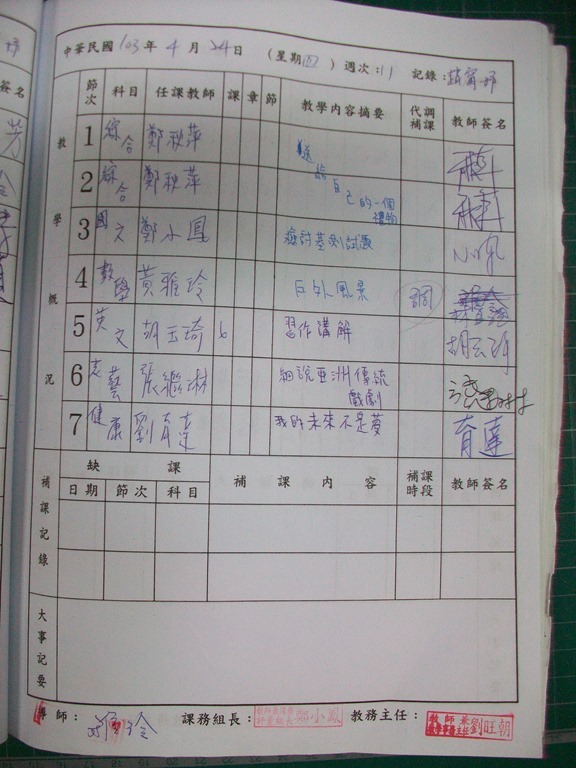 中華民國 103 年 4 月 24 日 （星期四）週次：11 記錄：
節次 科目 任課教師 課 章 節 教學內容摘要 代調補課 教師簽名
教學概況
1 綜合 鄭秋萍 送給自己的一個禮物
2 綜合 鄭秋萍
3 國文 鄭小鳳 檢討基測試題
4 數學 黃雅玲 戶外風景 調
5 英文 胡玉琦 6 習作講解
6 表藝 張繼琳 細說亞洲傳統戲劇
7 健康 劉育達 我的未來不是夢 育達
補課記錄
缺課 補課內容 補課時段 教師簽名
日期 節次 科目
大事記要
導師： 課務組長： 鄭小鳳 教務主任： 劉旺朝